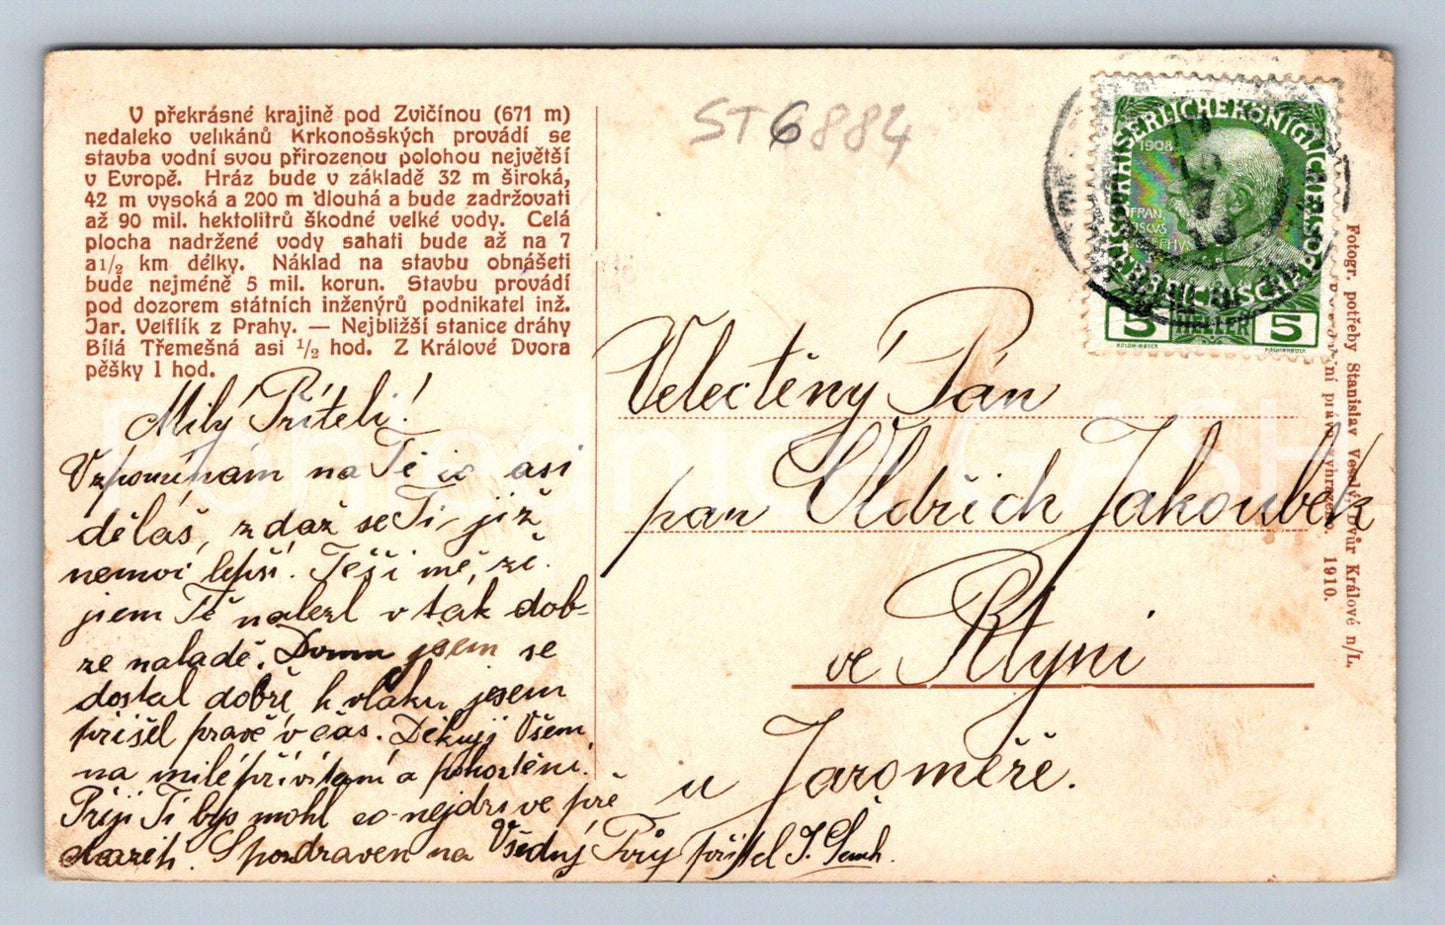 V překrásné krajině pod Zvičínou (671 m)
nedaleko velikánů Krkonošských provádí se
stavba vodní svou přirozenou polohou největší
v Evropě. Hráz bude v základě 32 m široká,
42 m vysoká a 200 m dlouhá a bude zadržovati
až 90 mil. hektolitrů škodné velké vody. Celá
plocha nadržené vody sahati bude až na 7
a 1/2 km délky. Náklad na stavbu obnášeti
bude nejméně 5 mil. korun. Stavbu provádí
pod dozorem státních inženýrů podnikatel inž.
Jar. Velflík z Prahy. — Nejbližší stanice dráhy
Bílá Třemešná asi 1/2 hod. Z Králové Dvora
pěšky 1 hod.
Milý Příteli!
Vzpomínám na Tě co asi
děláš, zdaž se Ti již
nemoi lepší. Těší mě, že
jsem Tě nalezl v tak dob-
ře naladě. Domu jsem se
dostal dobře, k vlaku jsem
přišel pravě v čas. Děkuji Všem
na milé přivítaní a pohostění.
Přeji Ti bys mohl co nejdříve
Spozdraven na Všední Tvůj přítel J.
ST6884
KAISERLICHE KÖNIGLICHE
ÖSTERREICHISCHE POST
1908
FRAN
CISCUS
JOSEPHUS
5 HELLER 5
Velectěný Pán
pan Oldřich Jakoubek
ve Rtyni
u Jaroměře.
Fotogr. potřeby Stanislav Veselý, Dvůr Králové n/L.
právo vyhrazeno. 1910.
Pohlednice GASH